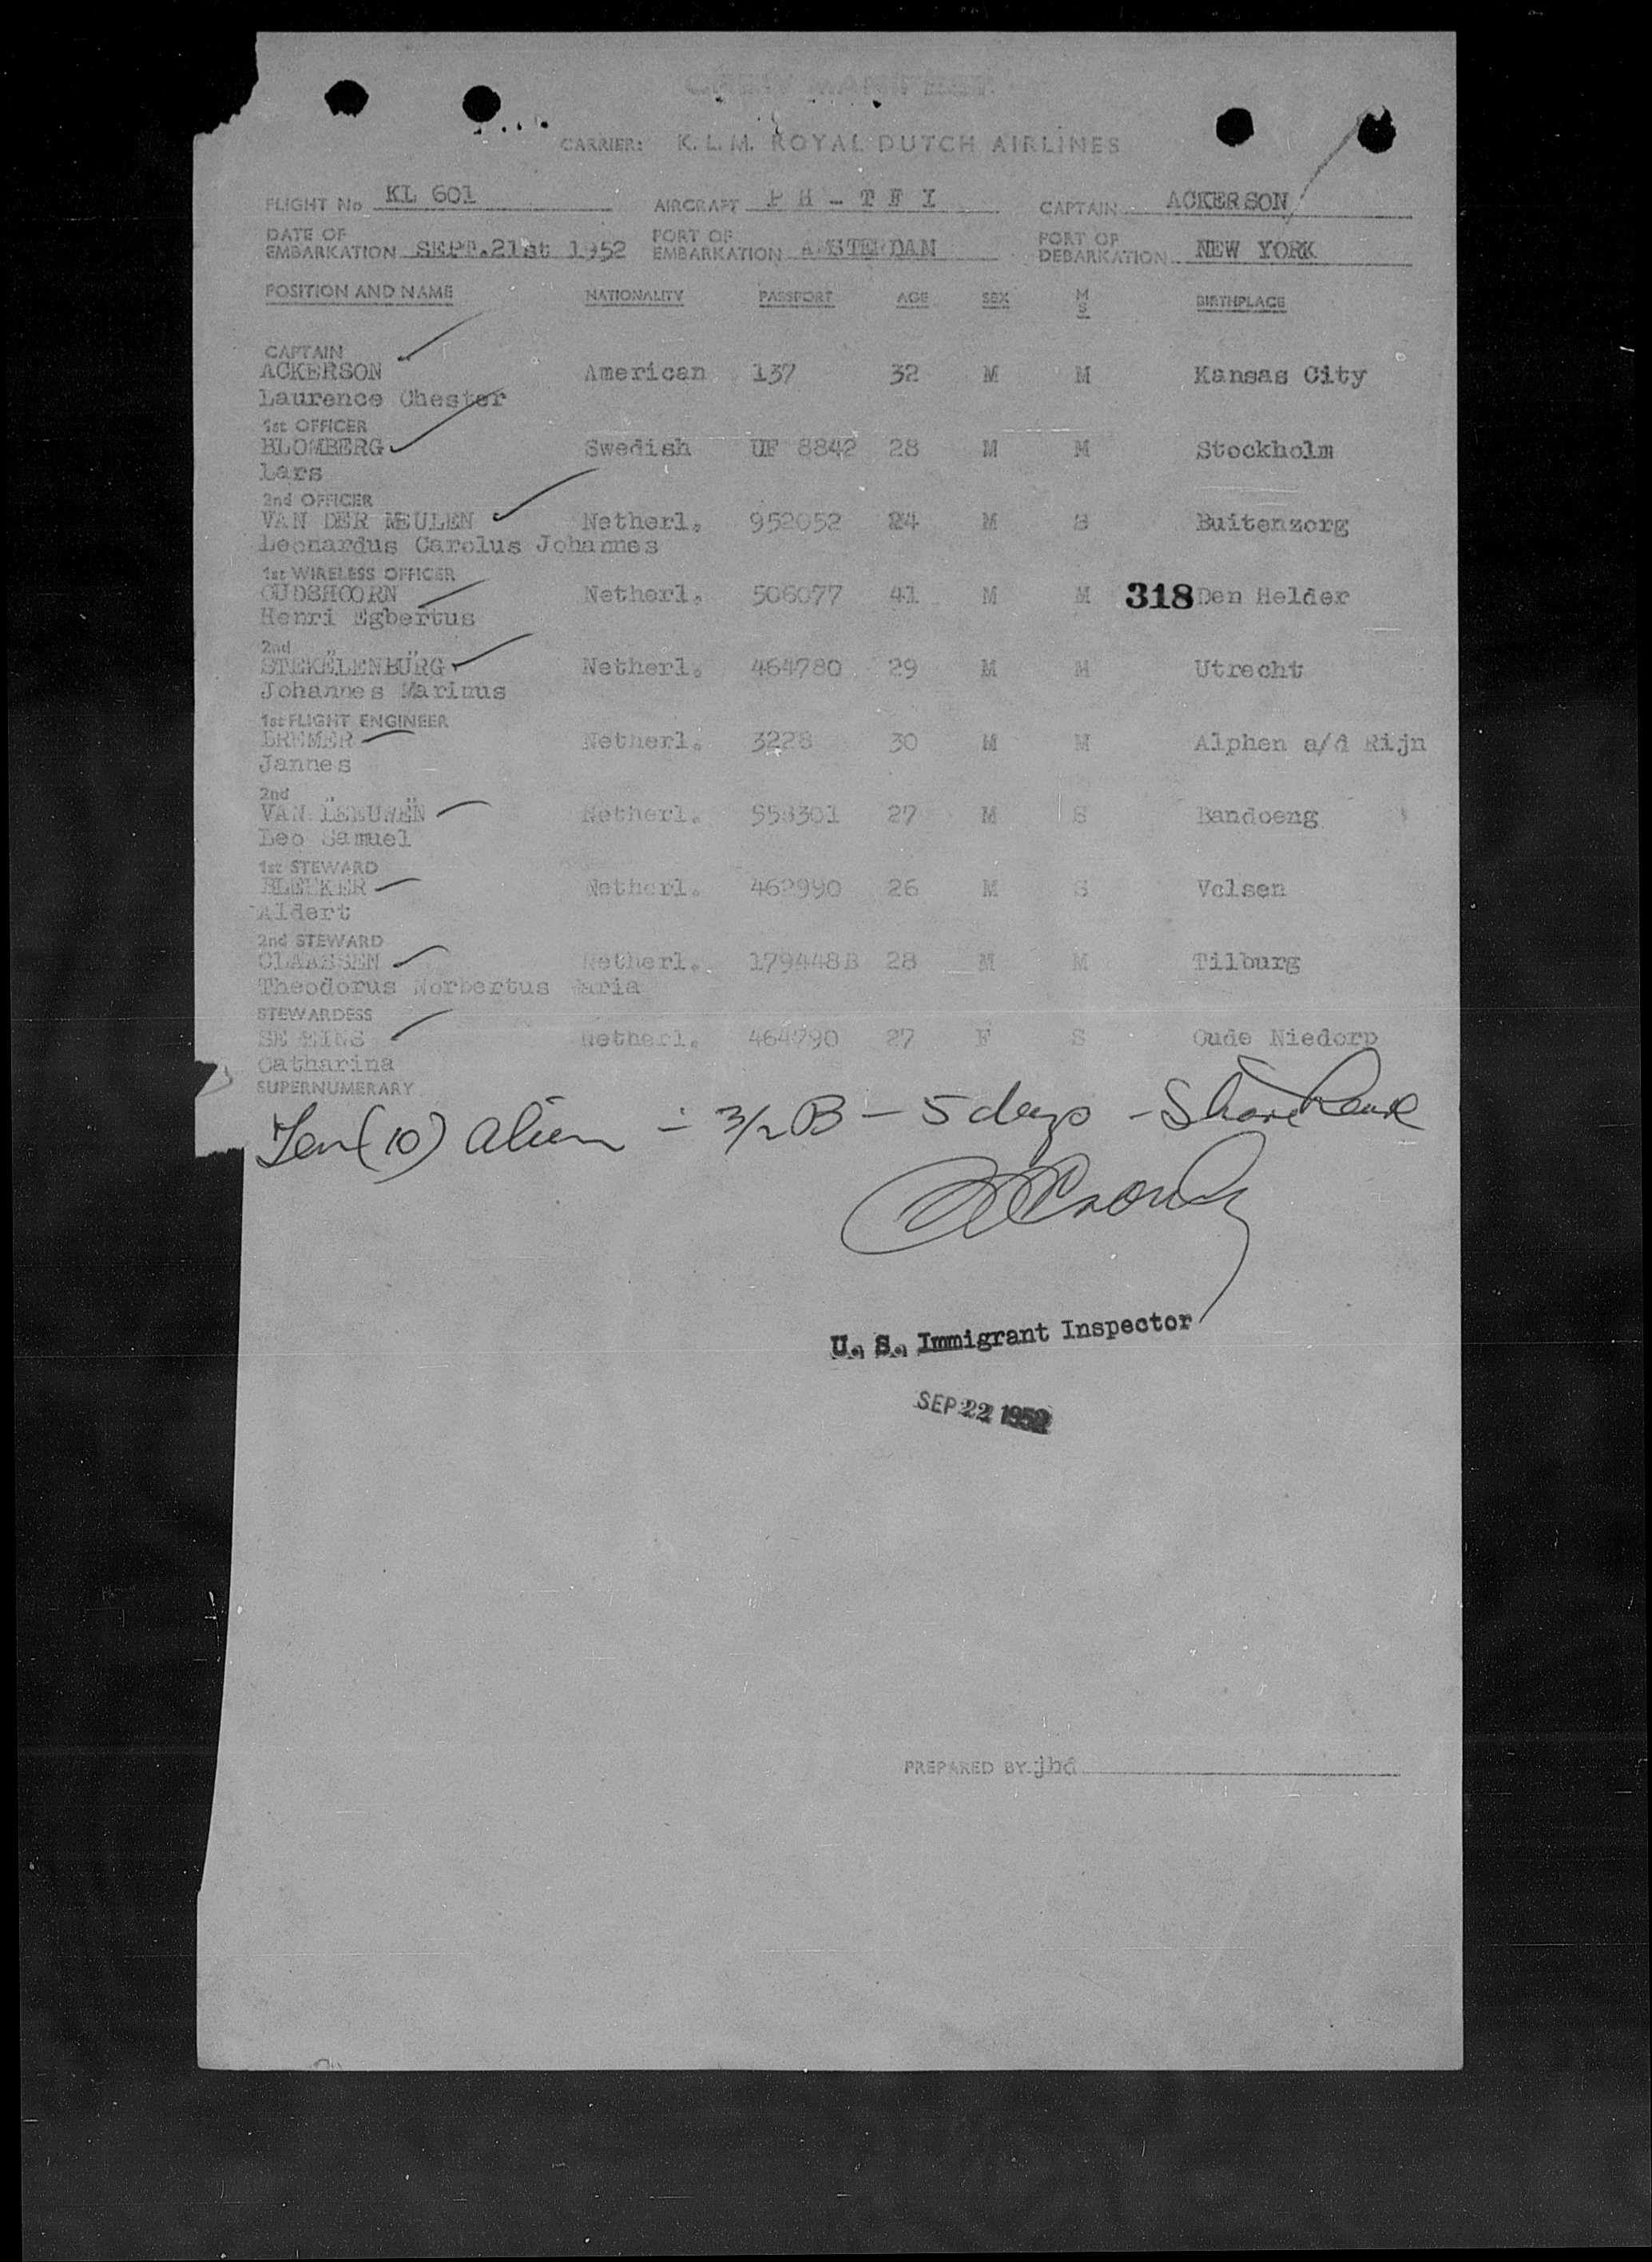 CREW MANIFEST
CARRIER: K.L.M. ROYAL DUTCH AIRLINES
FLIGHT No KL 601 AIRCRAFT P H - T F I CAPTAIN ACKERSON
DATE OF EMBARKATION SEPT.21st 1952 PORT OF EMBARKATION AMSTERDAM PORT OF DEBARKATION NEW YORK
POSITION AND NAME NATIONALITY PASSPORT AGE SEX M S BIRTHPLACE
CAPTAIN
ACKERSON American 137 32 M M Kansas City
Laurence Chester
1st OFFICER
BLOMBERG Swedish UF 8842 28 M M Stockholm
Lars
2nd OFFICER
VAN DER MEULEN Netherl. 952052 24 M S Buitenzorg
Leonardus Carolus Johannes
1st WIRELESS OFFICER
OUDSHOORN Netherl. 506077 41 M M 318 Den Helder
Henri Egbertus
2nd " "
STEKELENBURG Netherl. 464780 29 M M Utrecht
Johannes Marinus
1st FLIGHT ENGINEER
BREMER Netherl. 3228 30 M M Alphen a/d Rijn
Jannes
2nd " "
VAN LEEUWEN Netherl. 558301 27 M S Bandoeng
Leo Samuel
1st STEWARD
BLEEKER Netherl. 462990 26 M S Velsen
Aldert
2nd STEWARD
CLAASSEN Netherl. 179448B 28 M M Tilburg
Theodorus Norbertus Maria
STEWARDESS
Netherl. 464790 27 F S Oude Niedorp
Catharina
SUPERNUMERARY
Ten (10) alien - 3/2 B - 5 days - Shore Leave
U. S. Immigrant Inspector
SEP 22 1952
PREPARED BY jhd